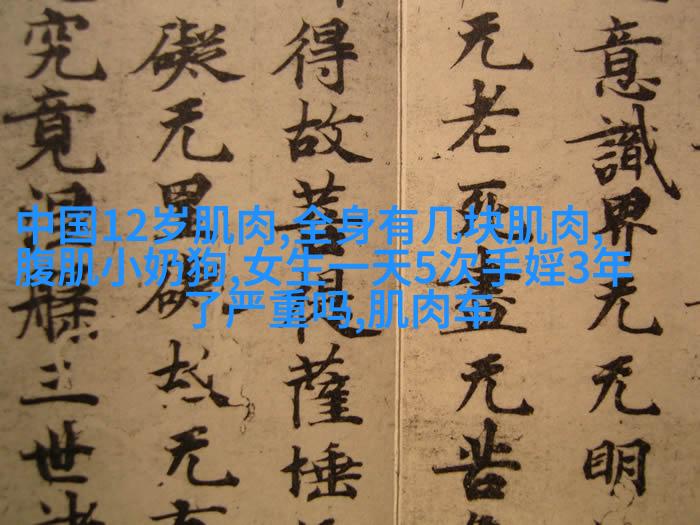 意識界无无明
无老死盡无苦
得故菩提薩埵
礙无罣礙故无有
究竟涅槃三世諸
中国12岁肌肉,全身有几块肌肉,
腹肌小奶狗,女生一天5次手婬3年
了严重吗,肌肉车